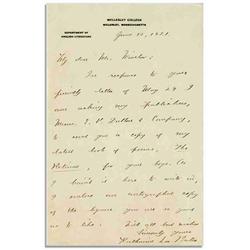 WELLESLEY COLLEGE
WELLESLEY, MASSACHUSETTS
DEPARTMENT OF
ENGLISH LITERATURE
June
My dear Mr.
In response to your
friendly letter of May 29 I
am asking my publishers,
Messrs. E. P. Dutton & Company,
to send you a copy of my
latest book of poems, The
Pilgrim, for your boys. As
I haven't it here to write in,
I enclose an autographed copy
of the hymn you are so good
as to like. With all good wishes
Sincerely yours
Katharine Lee Bates